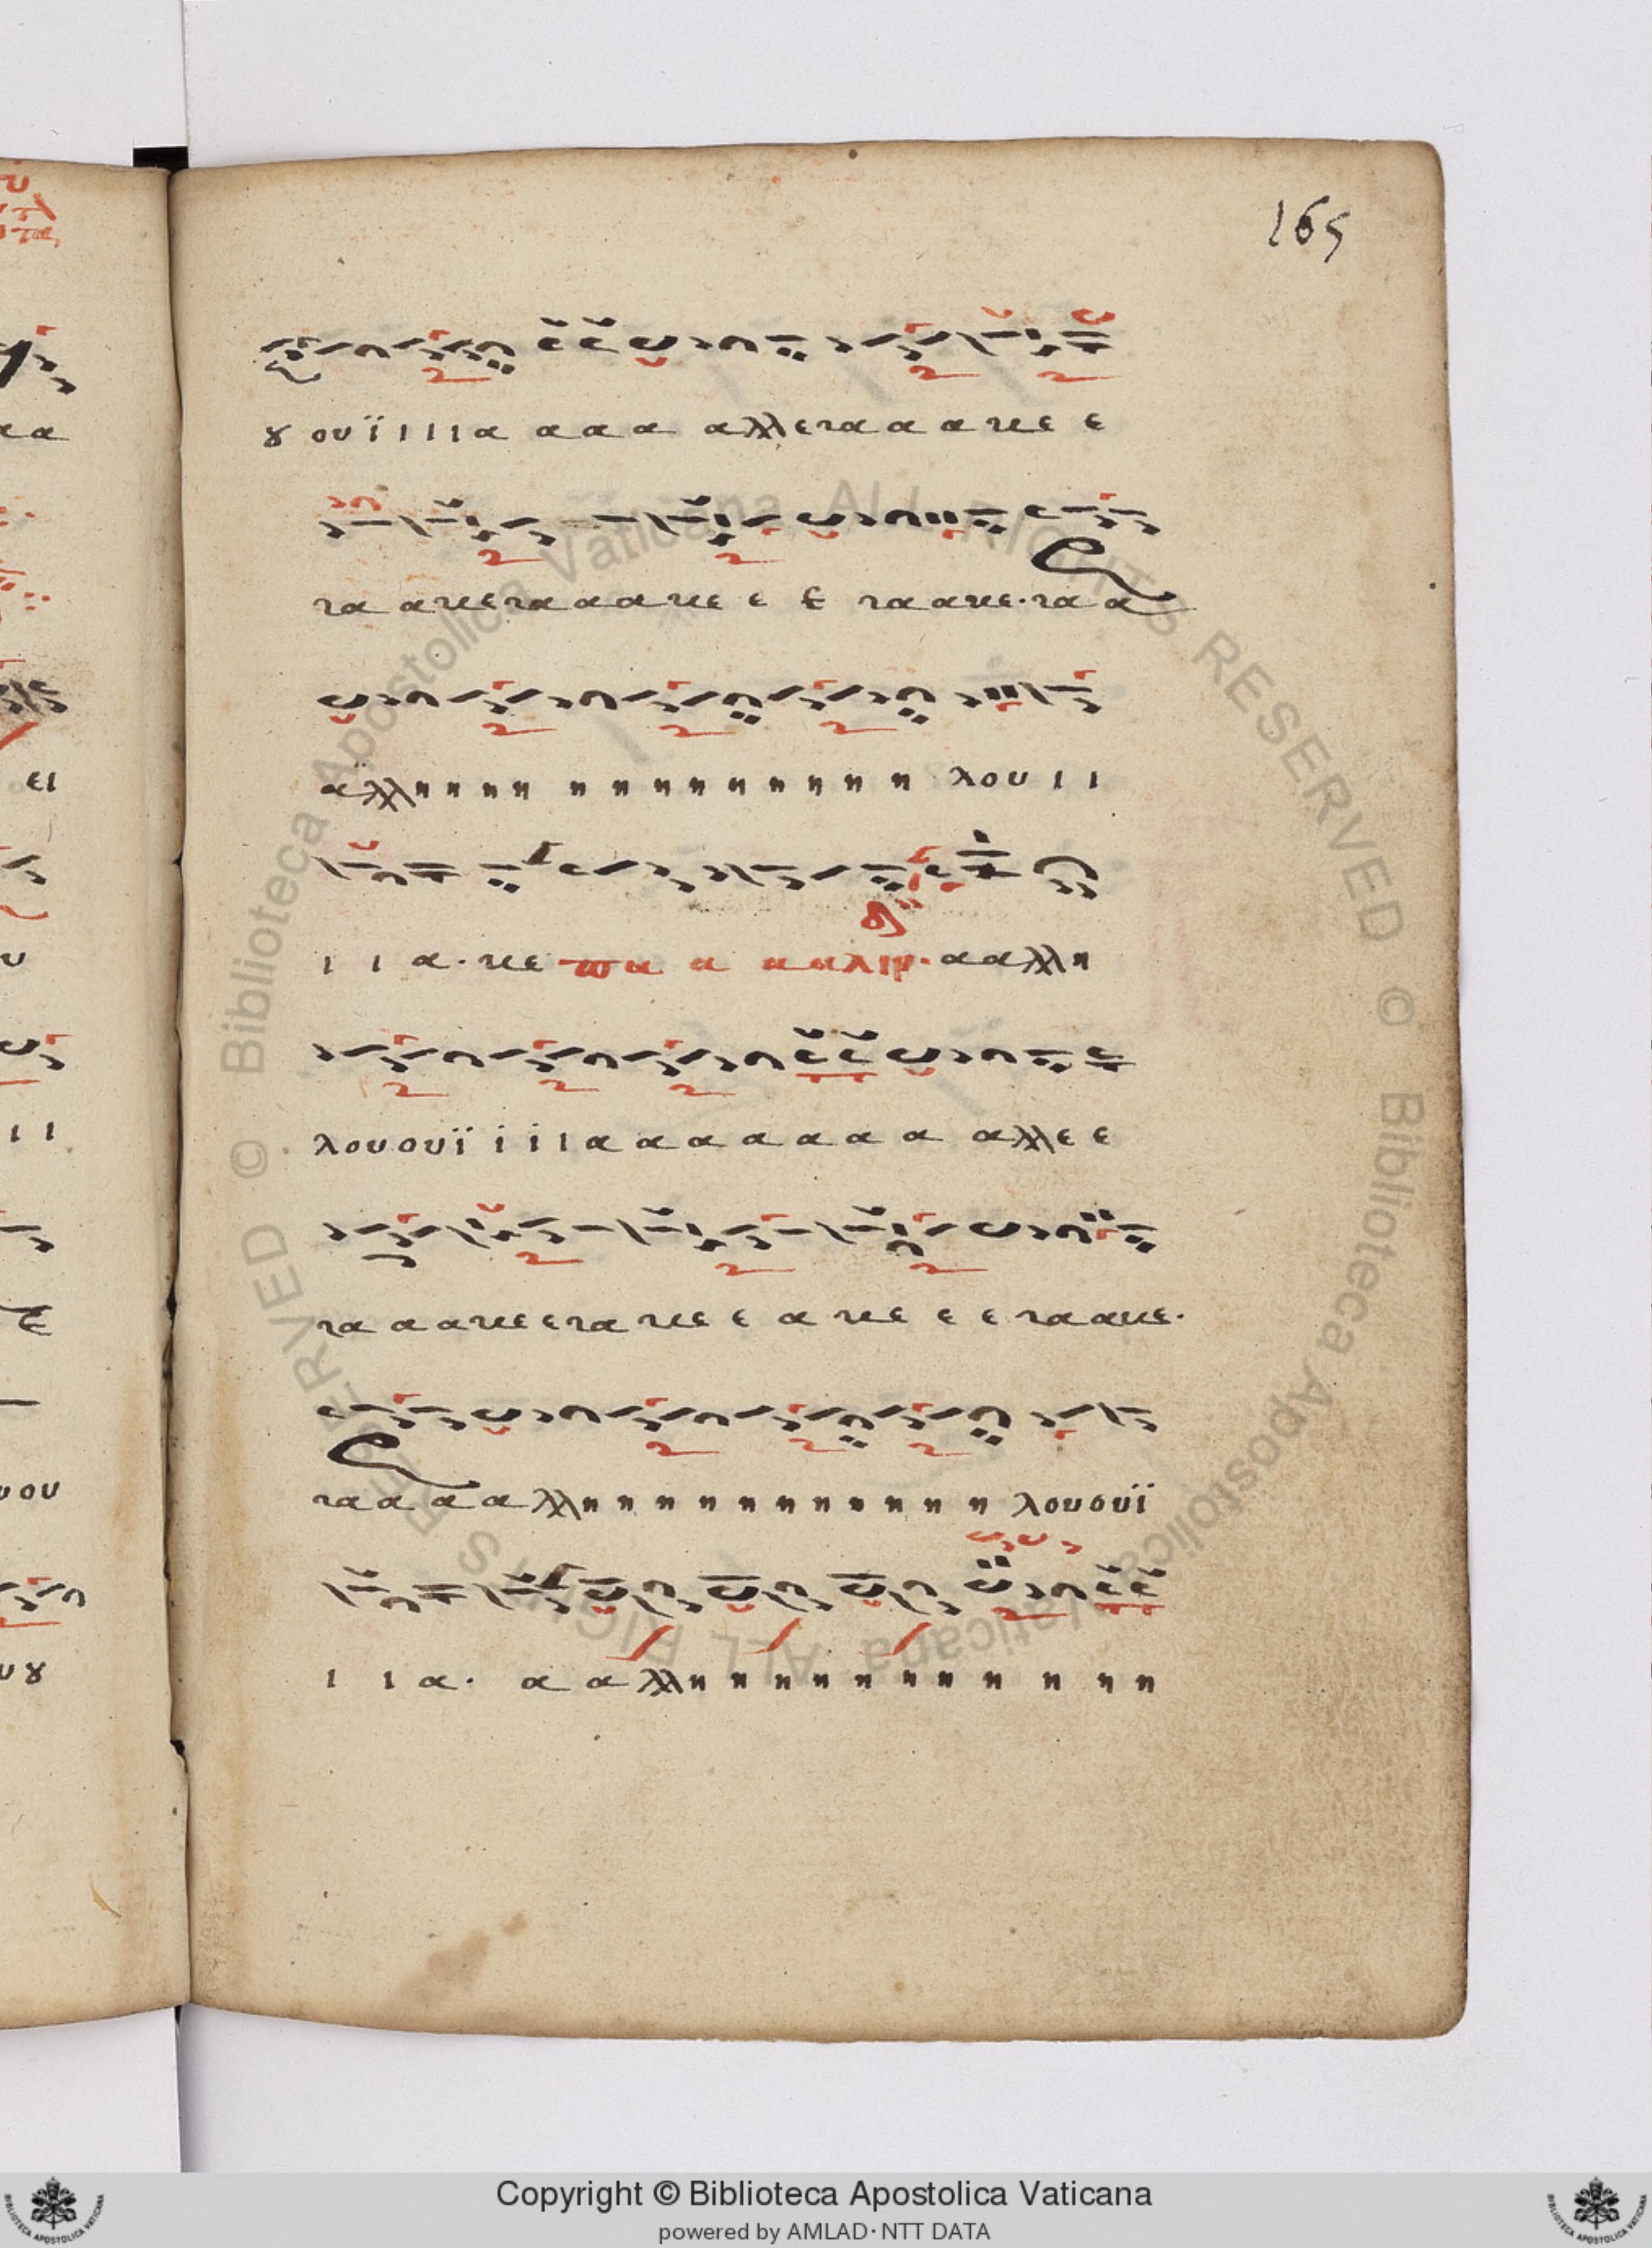 165
ȣ ουϊ ι ι ι α α α α αλλε να α α νε ε
να ανε να α α νε ε ε να ανε· να α
αλλη η η η η η η η η η η η η λου ι ι
ι ι α· νε πα α α α λιν· α αλλη
λου ουϊ ι ι ι α α α α α α α αλλε ε
να α α νε ε να νε ε α νε ε ε να ανε·
να α α αλλη η η η η η η η η η η λου ουϊ
ι ι α· α αλλη η η η η η η η η η η η
Copyright © Biblioteca Apostolica Vaticana
powered by AMLAD·NTT DATA